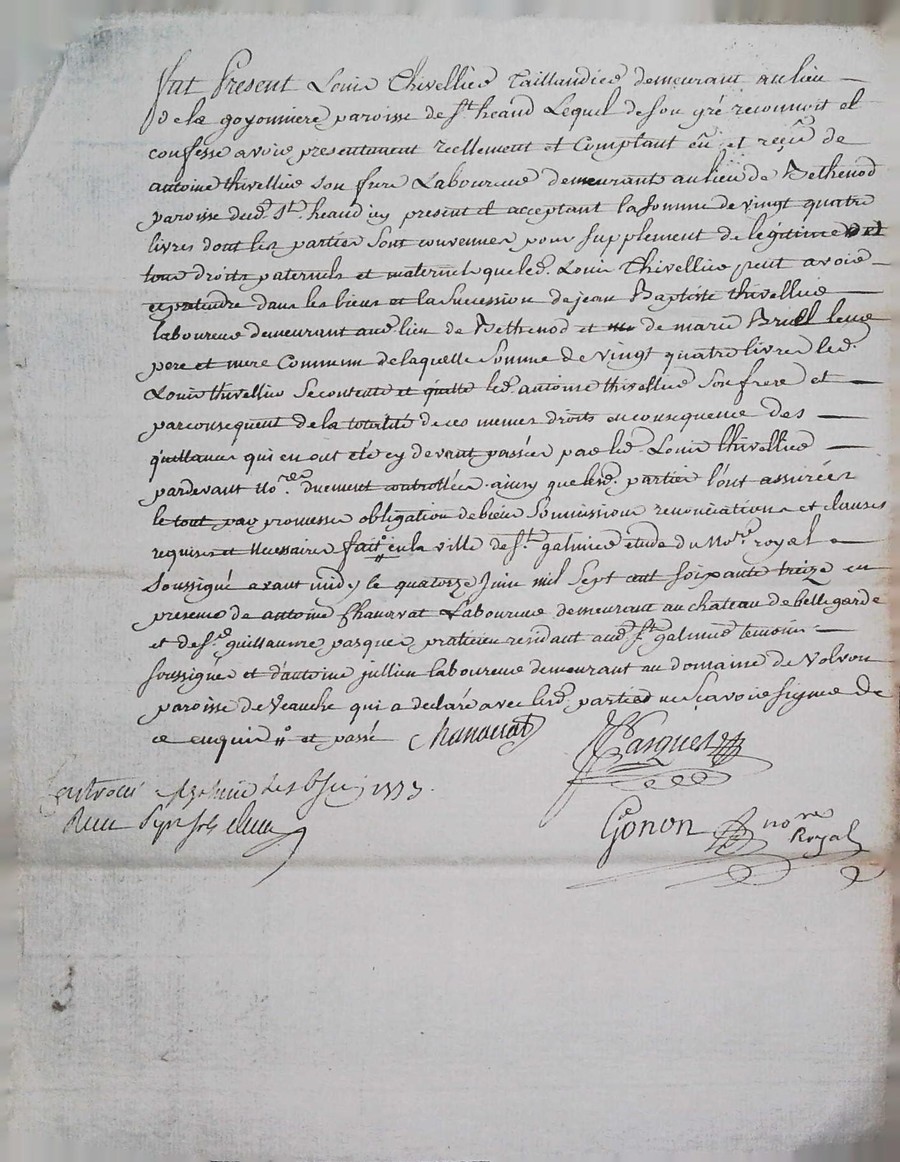 fut Present Louis Thivellier Taillandier demeurant au lieu
de la goyonniere paroisse de st. heand Lequel de son gré reconnoit et
confesse avoir presentement reellement et Comptant eu et reçu de
antoine thivellier son frere Laboureur demeurant au lieu de Bethenod
paroisse dud. st. heand icy present et acceptant la somme de vingt quatre
livres dont les parties sont convenues pour supplement de légitime et
tous droits paternels et maternels que led. Louis Thivellier peut avoir
et pretendre dans les biens et la succession de jean Baptiste thivellier
laboureur demeurant aud. lieu de Bethenod et de marie leurs
pere et mere Comme de laquelle somme de vingt quatre livres led.
Louis thivellier se contente et quitte led. antoine thivellier son frere et
par consequent de la totalité de ces memes droits en consequence des
quittances qui en ont eté cy devant passées par led. Louis thivellier
pardevant nores. duement controllées ainsy que lesd. parties l'ont assurées
le tout par promesses obligation de biens soumissions renonciations et clauses
requises et necessaires fait en la ville de st. galmier etude du nore. royal
soussigné avant midy le quatorze juin mil sept cent soixante treize en
presence de antoine Chanavat Laboureur demeurant au chateau de bellegarde
et de sr. guillaume pasquer praticien residant aud. st. galmier temoins
soussignés et d'antoine jullien laboureur demeurant au domaine de Volvon
paroisse de Veauche qui a declaré avec lesd. parties ne sçavoir signer de
ce enquis et passé Chanavat Pasquer
galmier 1773.
Gonon nore
Royal